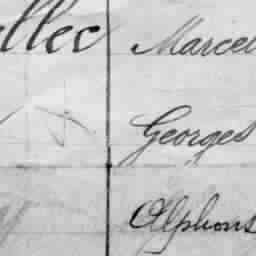 llec Marcel
Georges
Alphons